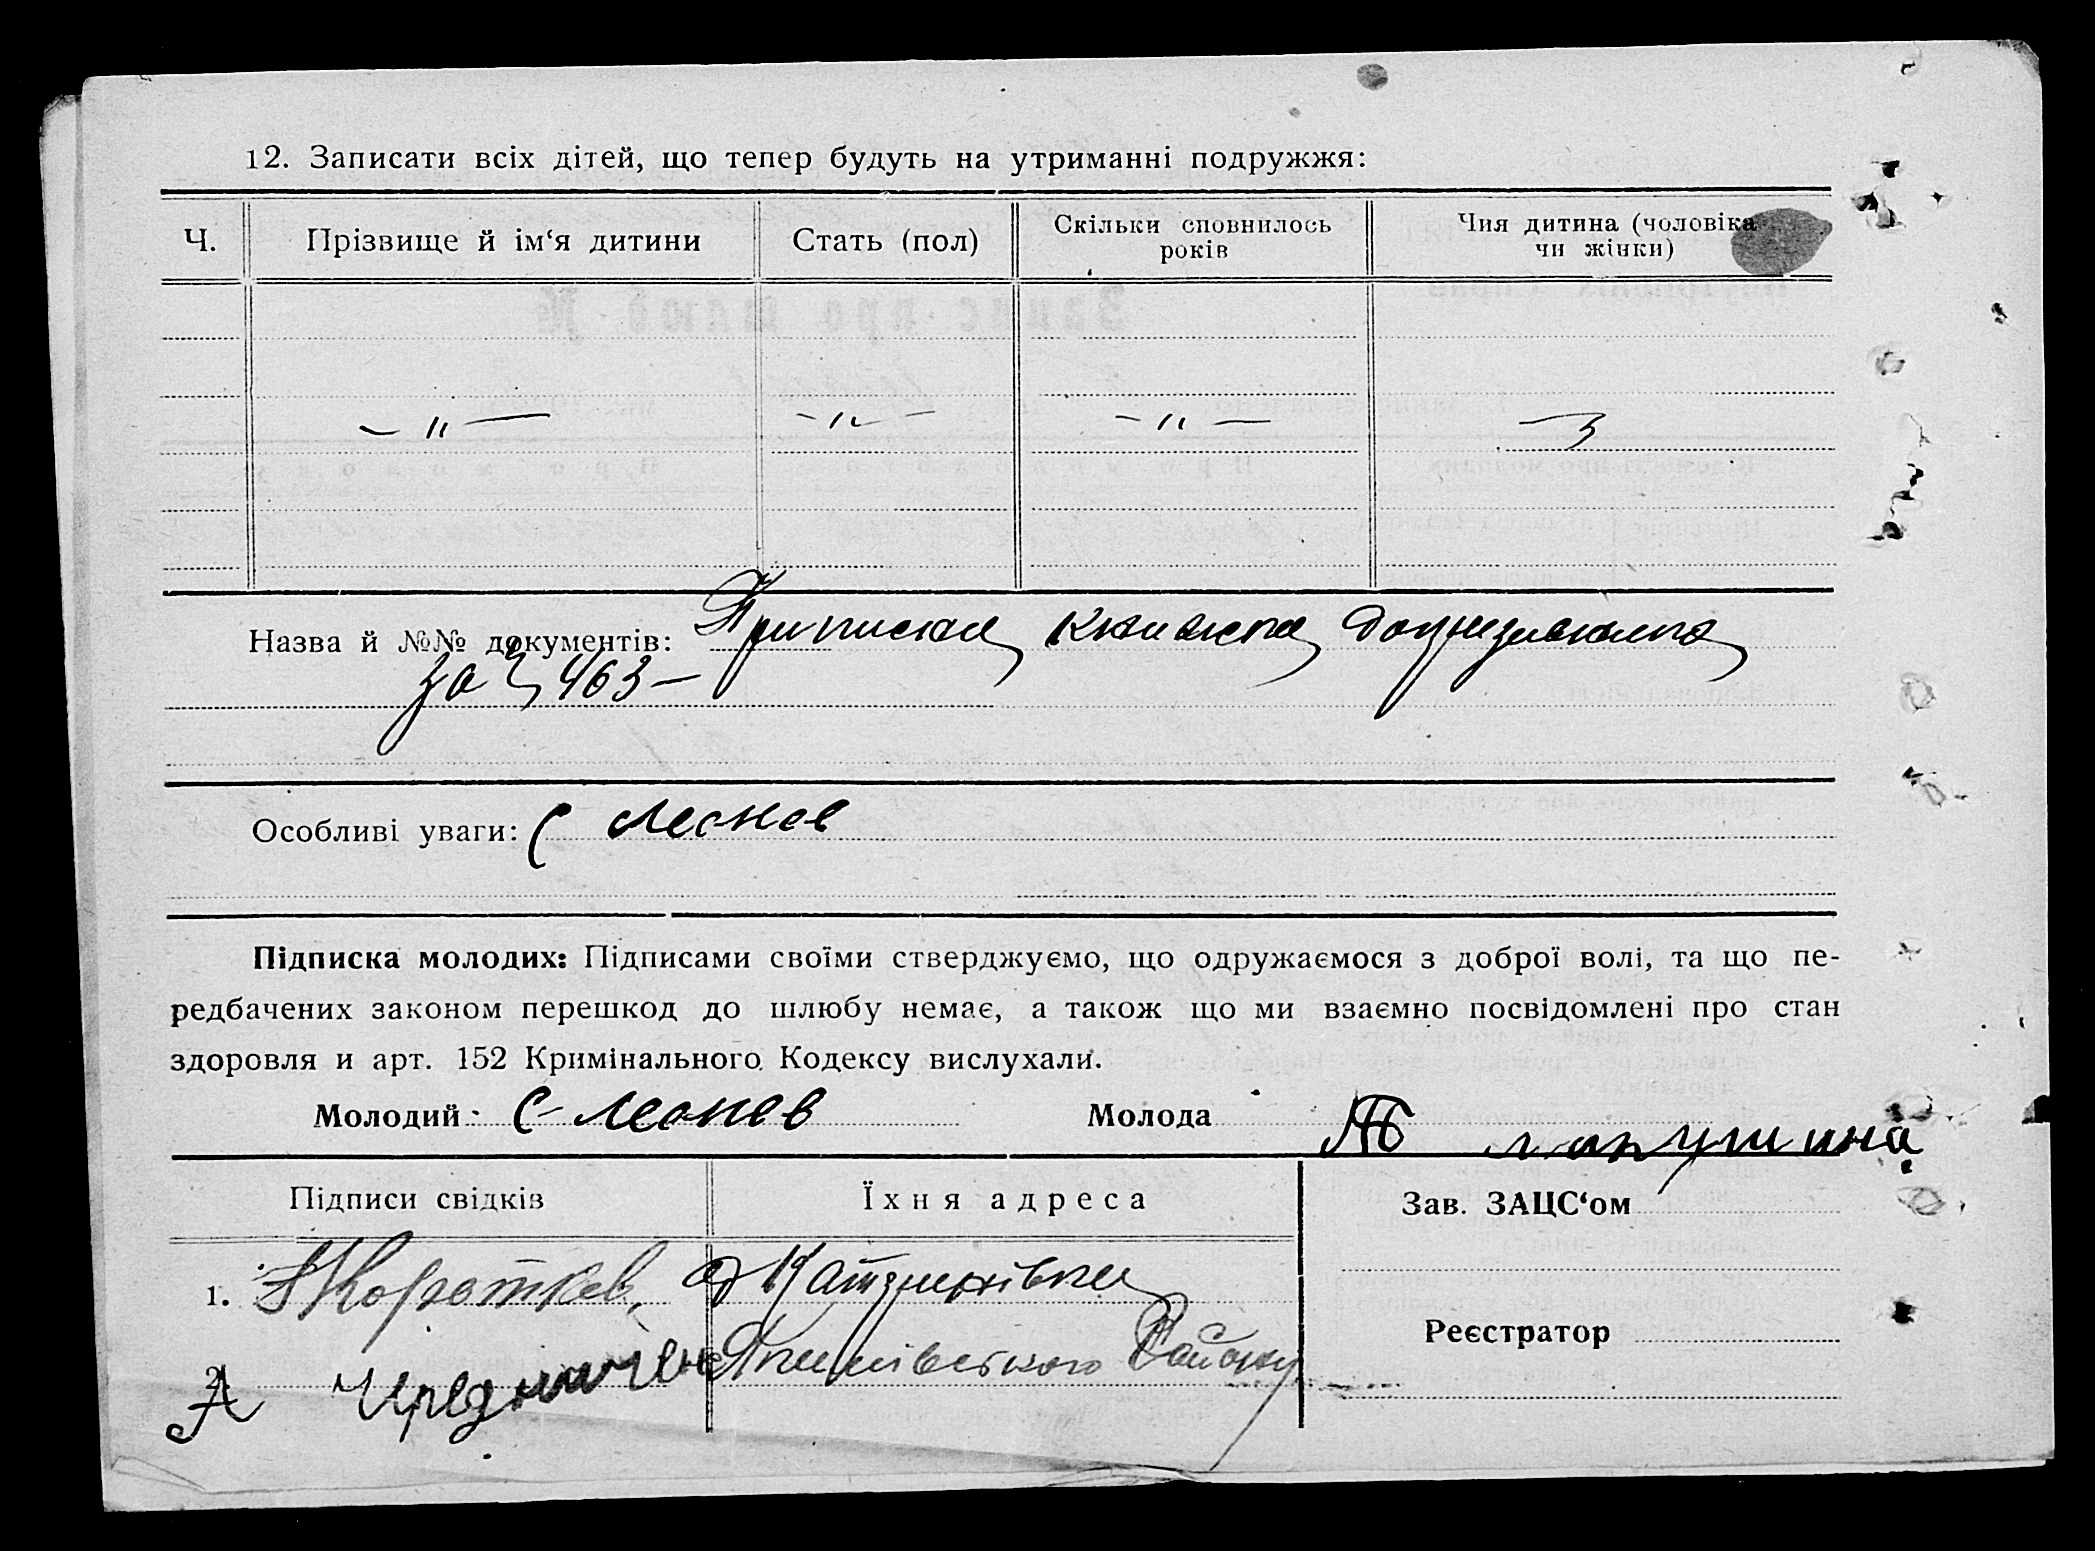 12. Записати всіх дітей, що тепер будуть на утриманні подружжя:
Ч. Прізвище й ім‘я дитини Стать (пол) Скільки сповнилось років Чия дитина (чоловіка чи жінки)
– " — – " – – " —
Назва й №№ документів: Приписна книжка допризивника
за Ч 463 –
Особливі уваги: С Леонов
Підписка молодих: Підписами своїми стверджуємо, що одружаємося з доброї волі, та що пе-
редбачених законом перешкод до шлюбу немає, а також що ми взаємно посвідомлені про стан
здоровля и арт. 152 Кримінального Кодексу вислухали.
Молодий: С Леонов Молода Лапушина
Підписи свідків Їхня адреса Зав. ЗАЦС‘ом
1. Коротков
Реєстратор
2. А Району